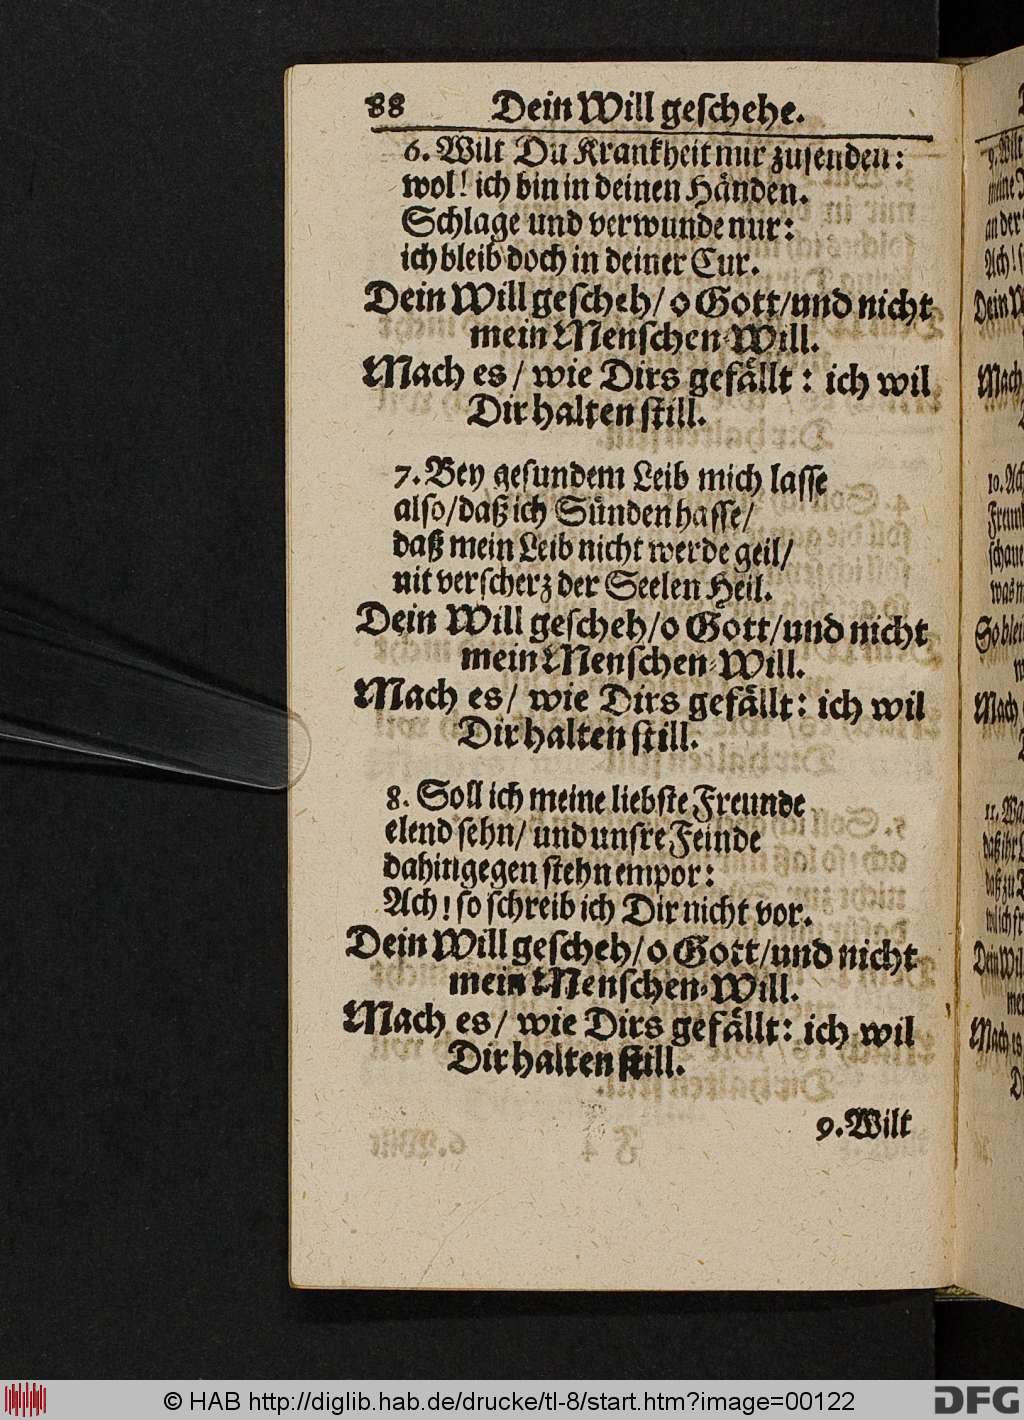 88 Dein Will geschehe.
6. Wilt Du Krankheit nur zusenden:
wol! ich bin in deinen Händen.
Schlage und verwunde nur:
ich bleib doch in deiner Cur.
Dein Will gescheh/ o Gott/ und nicht
mein Menschen-Will.
Mach es/ wie Dirs gefällt: ich wil
Dir halten still.
7. Bey gesundem Leib mich lasse
also/ daß ich Sünden hasse/
daß mein Leib nicht werde geil/
nit verscherz der Seelen Heil.
Dein Will gescheh/ o Gott/ und nicht
mein Menschen-Will.
Mach es/ wie Dirs gefällt: ich wil
Dir halten still.
8. Soll ich meine liebste Freunde
elend sehn/ und unsre Feinde
dahingegen stehn empor:
Ach! so schreib ich Dir nicht vor.
Dein Will gescheh/ o Gott/ und nicht
mein Menschen-Will.
Mach es/ wie Dirs gefällt: ich wil
Dir halten still.
9. Wilt
© HAB http://diglib.hab.de/drucke/tl-8/start.htm?image=00122
DFG